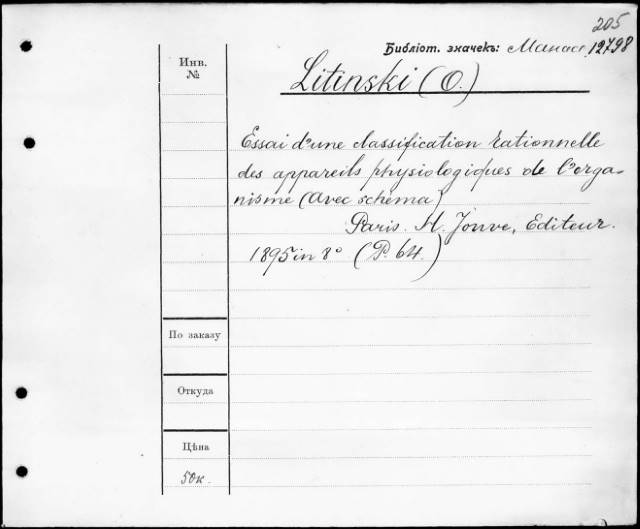 205
Библіот. значекъ: Манас. 12798
Инв.
№
Litinski (O.)
Essai d'une classification rationnelle
des appareils physiologiques de l'orga-
nisme (Avec schéma)
Paris. H. Jouve, Editeur.
1895 in 8° (P. 64.)
По заказу
Откуда
Цѣна
50к.